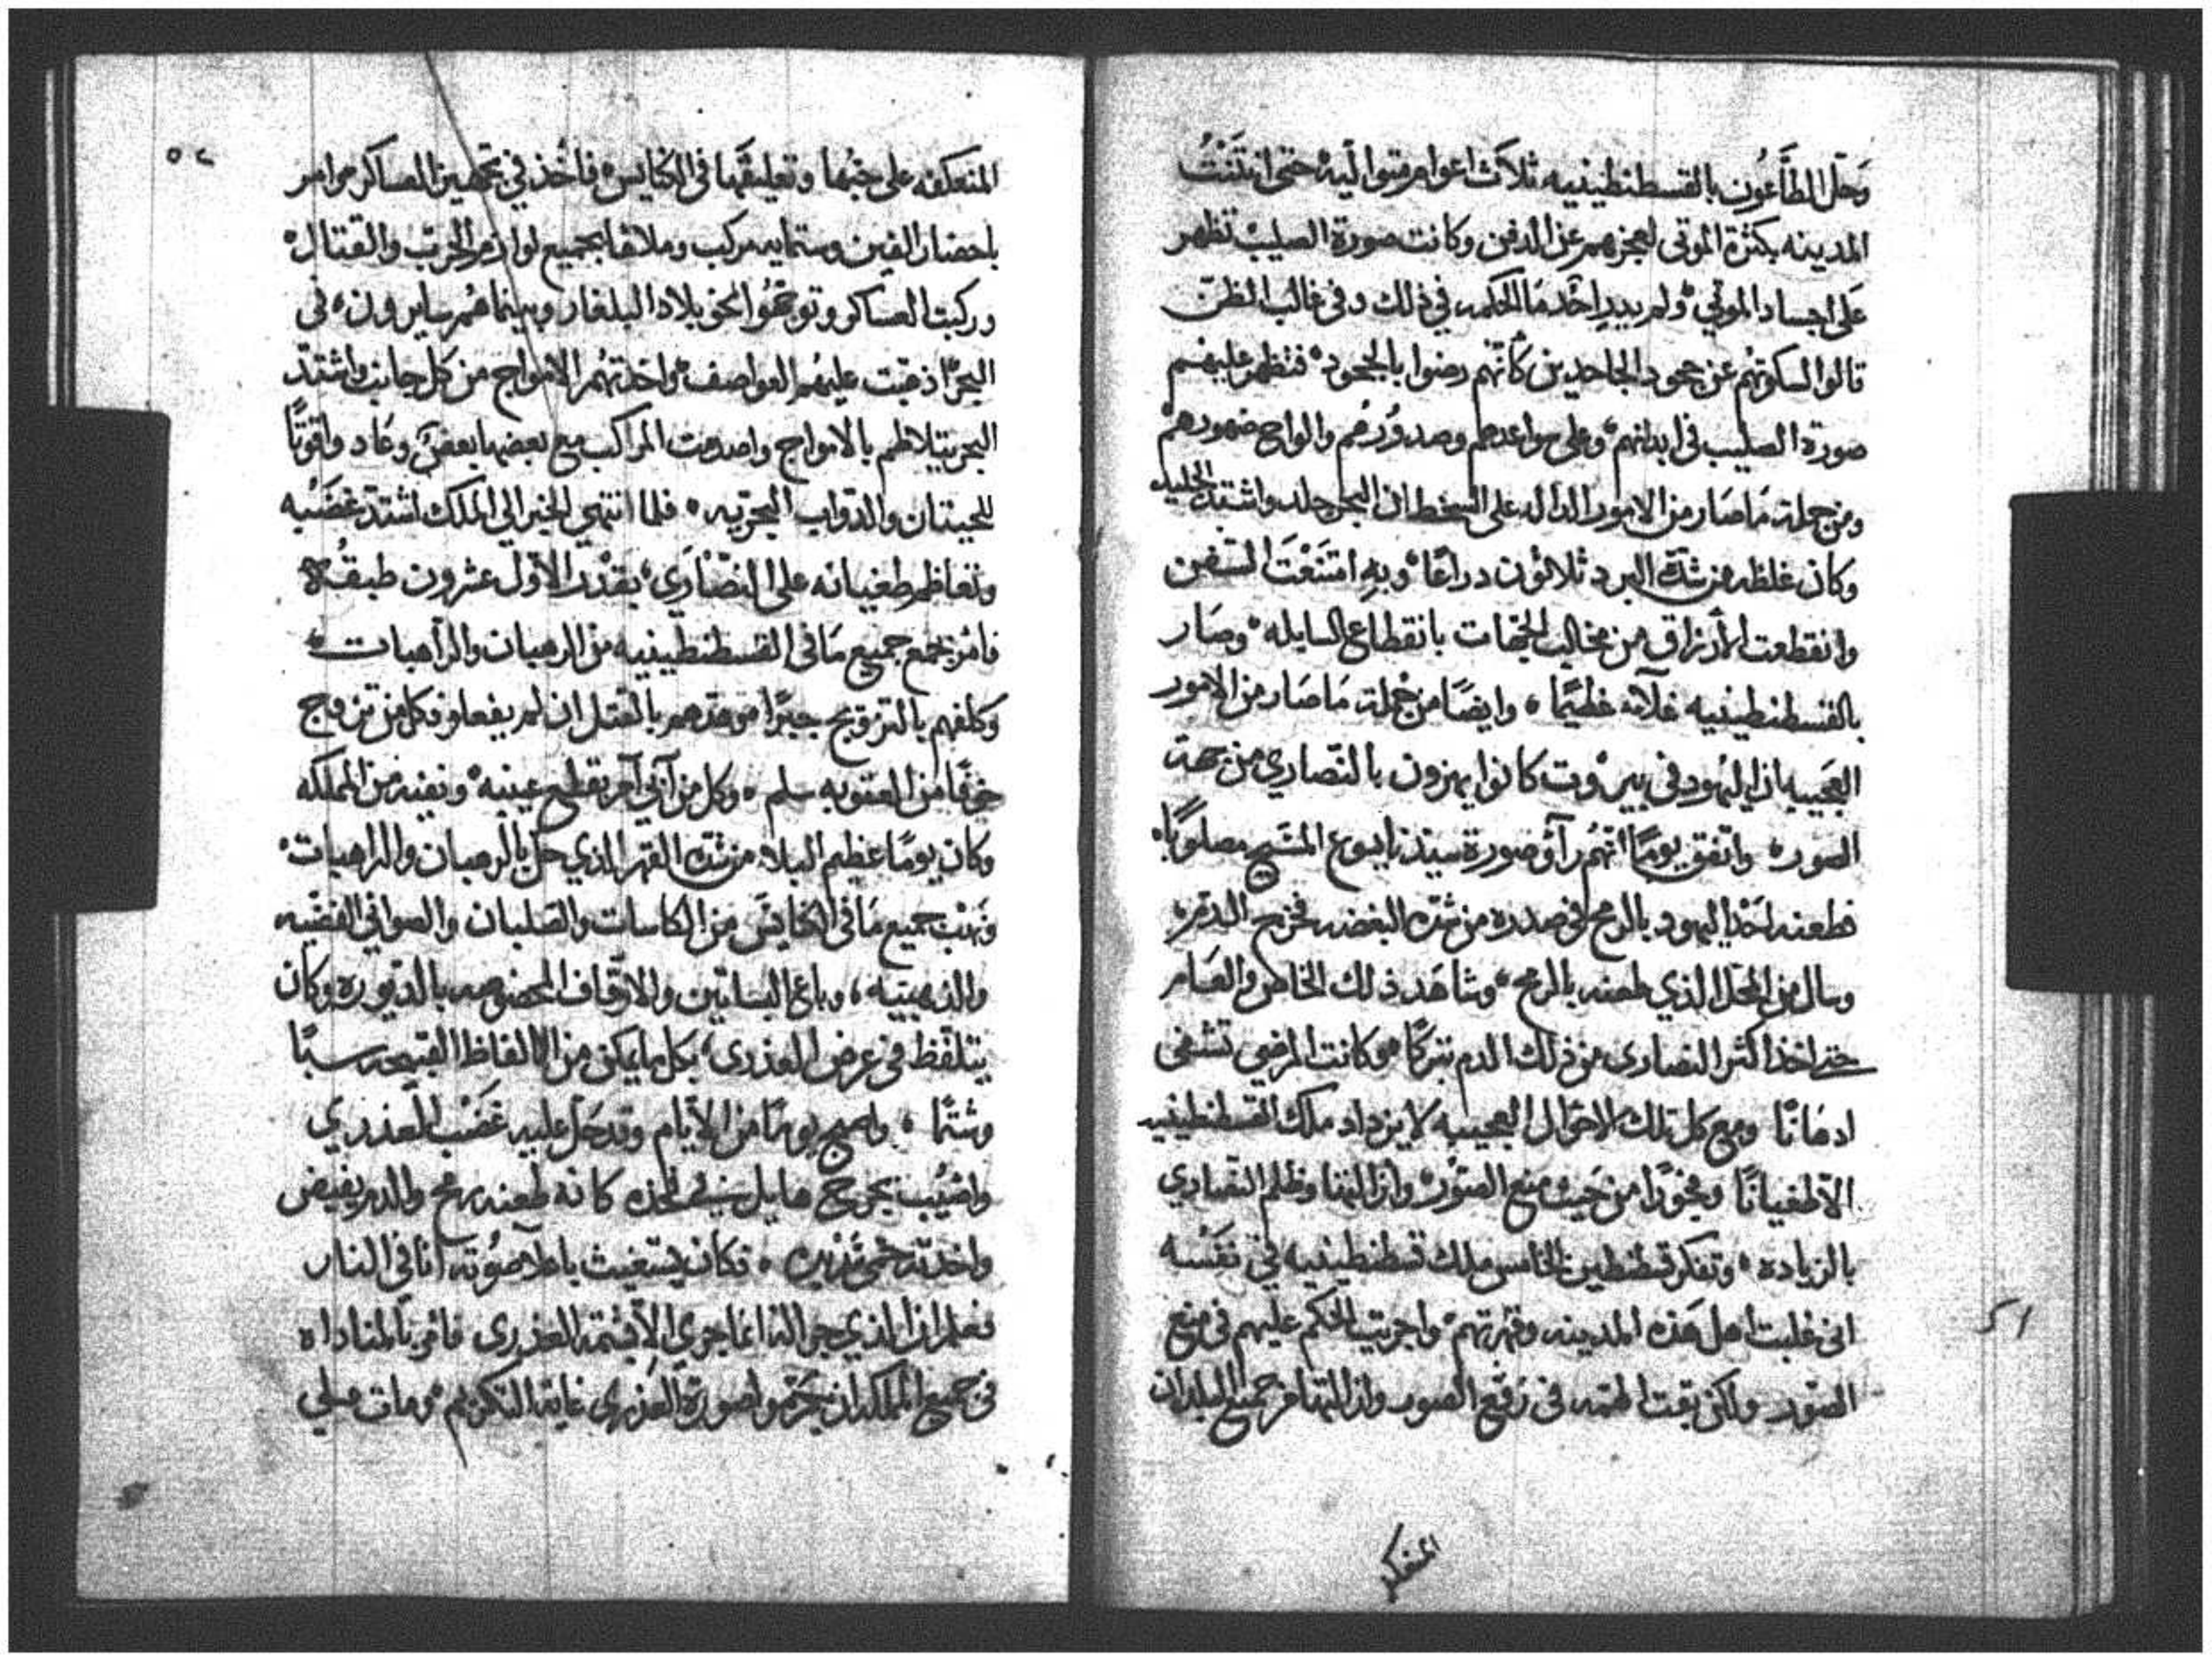 وَحلّ الطَّاعُون بالقسطنطينيه ثلاَث اعوام متواليه حتى انتنَتُ
المدينه بكثرة الموتى لعجزهم عن الدفن وكانت صورة الصليب تظهر
عَلى اجساد الموتي ولم يدرِ احَد مَا الحكمه في ذلك وفى غالب الظن
قالوا لسكوتهم عن جحود الجاحدين كأنهم رضوا بالجحود فتظهر عليهم
صورة الصليب فى ابدانهم وعلى سواعدهم وصدورهم والواح ضهورهم
ومن جملة مَا صَار من الامور الداله على السخط ان البحر جلد واشتد الجليد
وكان غلظه من شدّة البرد ثلاثون دراعًا وبهِ امتنَعَت السّفن
وانقطعت الأرزاق من غالب الجهات بانقطاع السابله وصَار
بالقسطنطينيه غلآء عظيمًا وايضًا من جملة مَا صَار من الامور
العَجيبه ان اليهود فى بيرُوت كانوا يهزون بالنّصاري من جهة
الصور واتفق يومًا انهُم رآوُ صورة سيدنا يسوع المسَيح مصلوبًا
فطعنه احَد اليهود بالرمح فى صدره من شدّة البغضه فخرج الدم
وسال من المحَل الذي طعنه بالرمح وشاهَد ذلك الخاص والعَام
حتى اخذ اكثر النصارى من ذلك الدم تبركًا وكانت المرضى تشفى
ادهَانًا ومع كل تلك الاحوال العجيبه لا يزداد ملك القسطنطينيه
الاّ طغيانًا وفجورًا من حَيث منع الصوُر وازالتها وظلم النصاري
بالزياده وتفكر قسطنطين الخامس ملك قسطنطينيه في نفَسه
انى غلبت اهل هَذه المدينه وقهرتهم واجريت الحكم عليهم فى منع
الصور ولكن بقت الهمه فى رفع الصور وازالتها من جميع البلدان
المنعكفه
51
52
المنعكفه على حبّها وتعليقهَا فى الكنايس فاخُذ في تجهيز العساكر وامر
باحضار الفين وستمايه مركب وملاها بجميع لوازم الحرب والقتال
وركبت العساكر وتوجّهوُا نحو بلاد البلغار وبينما هُم سايرون في
البحر اذ هبّت عليهُم العواصف واخدتهُم الامواج من كل جانب واشتدّ
البحر يتلاطم بالامواج واصدمت المراكب مع بعضها بعض وعَادوا قوتًا
للحيتان والدّواب البحريه فلما انتهى الخبر الي الملك اشتدّ غضَبه
وتعاظم طغيانه على النصَاري بقَدْر الاَول عشرون طبقُه
فامَر بجمع جميع مَا فى القسطنطينيه من الرهبان والراهبات
وكلفهم بالتزويج جبرًا وهدّدهم بالقتل ان لم يفعلو فكل من تزوج
خوفًا من العقوبه سلم وكل من أبي آمر بقطع عينيه ونفيه من المملكه
وكان يومًا عظيم البلاء من شدّة القهر الذي حلّ بالرهبان والراهبات
ونَهَب جميع مَا فى الكنايسَ من الكاسات والصّلبان والصوانى الفضيه
والذهبيّيه وباع البساتين والاوقاف المخصوصه بالديوره وكان
يتلفّظ فى عرض العذرى بكل ما يمكن من الالفاظ القبيحه سبًا
وشتمًا واصبح يومًا من الاَيام وقد حَل عليه غضَب العذري
واصُيب بجرح هايل في فخذه كانه طعنه رمح والدم يفيض
واخدته حمى شديده فكان يستغيث باعلا صُوته آنا في النار
فعلم ان الذي جراله انما جري لشتمه العذرى فامر بالمناداه
فى جميع المملكه ان يكرّموا صورة العذرى غاية التكريم ومات على